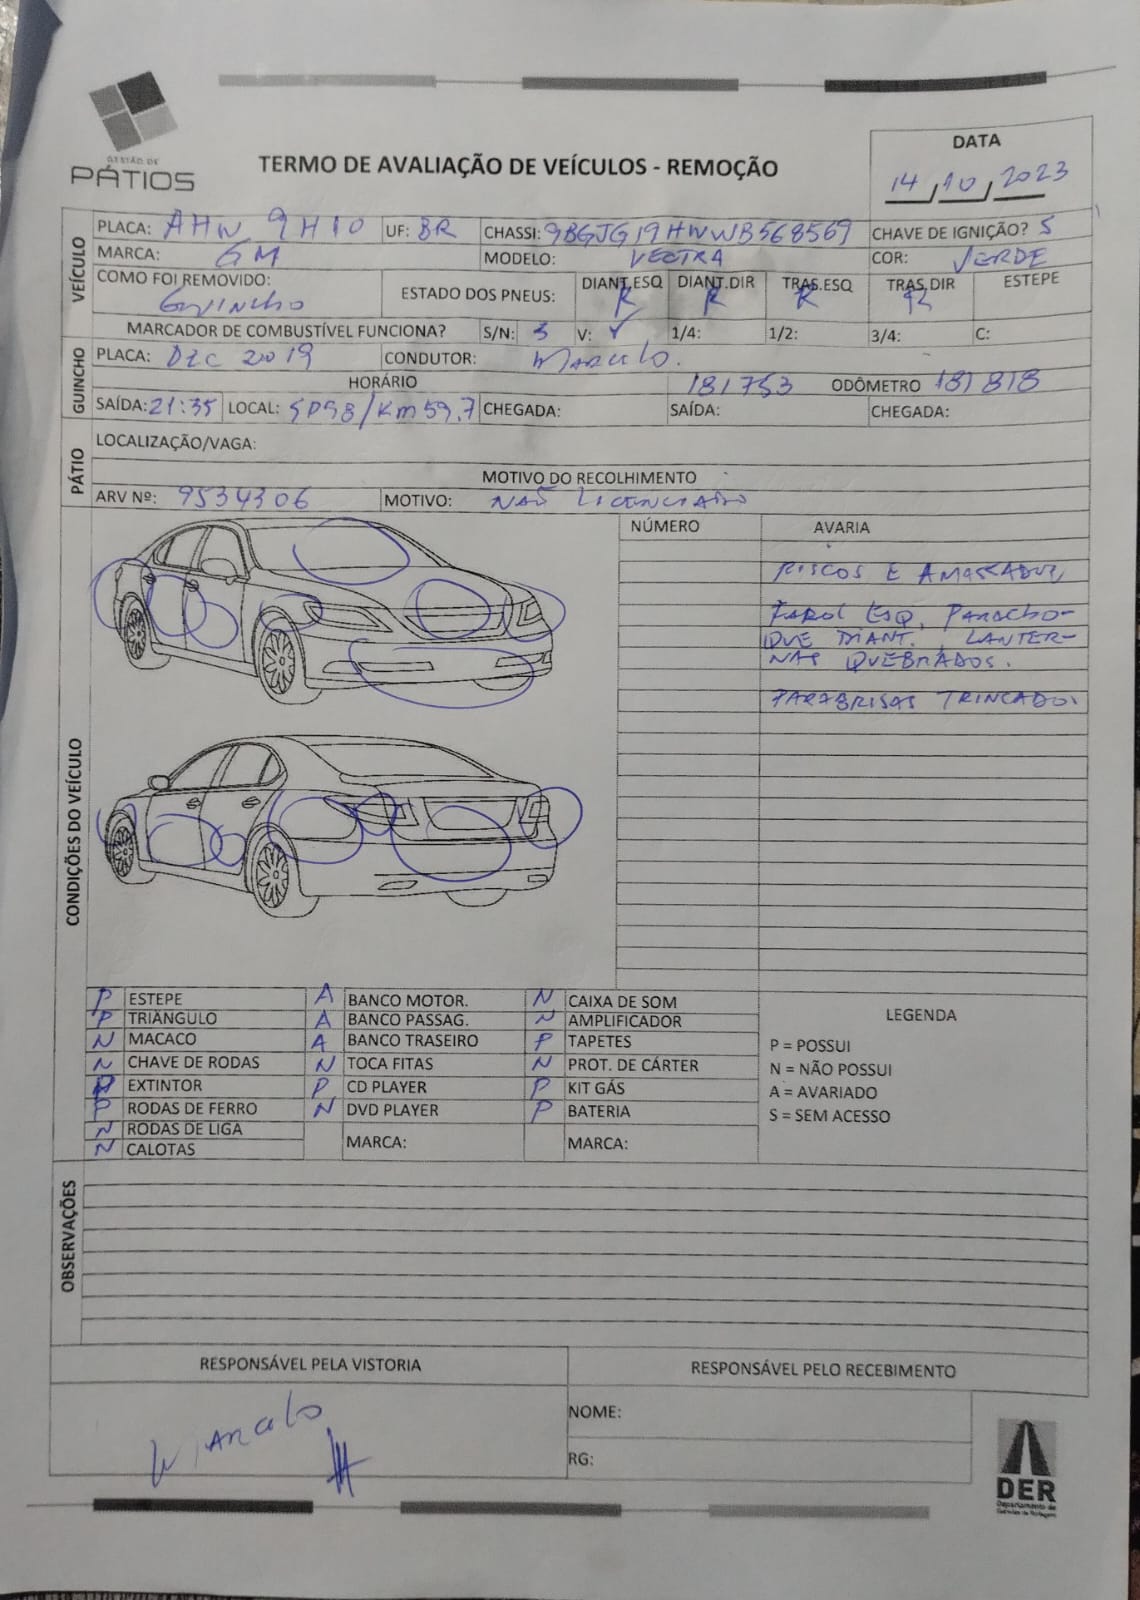 GESTÃO DE
PÁTIOS
TERMO DE AVALIAÇÃO DE VEÍCULOS - REMOÇÃO
DATA
14/10/2023
VEÍCULO
PLACA: AHW 9H10 UF: BR CHASSI: 9BGJG19HWWB568569 CHAVE DE IGNIÇÃO? S
MARCA: GM MODELO: VECTRA COR: VERDE
COMO FOI REMOVIDO: Guincho
ESTADO DOS PNEUS: DIANT.ESQ R DIANT.DIR R TRAS.ESQ R TRAS.DIR R ESTEPE
MARCADOR DE COMBUSTÍVEL FUNCIONA? S/N: S V: ✓ 1/4: 1/2: 3/4: C:
GUINCHO
PLACA: DZC 2019 CONDUTOR: Marcelo.
HORÁRIO 181753 ODÔMETRO 181818
SAÍDA: 21:35 LOCAL: SP98/Km 59,7 CHEGADA: SAÍDA: CHEGADA:
PÁTIO
LOCALIZAÇÃO/VAGA:
MOTIVO DO RECOLHIMENTO
ARV Nº: 9534306 MOTIVO: NÃO LICENCIADO
CONDIÇÕES DO VEÍCULO
NÚMERO AVARIA
RISCOS E AMASSADOS,
FAROL ESQ, PARACHO-
QUE DIANT. LANTER-
NAS QUEBRADOS.
PARABRISAS TRINCADO.
P ESTEPE A BANCO MOTOR. N CAIXA DE SOM
P TRIÂNGULO A BANCO PASSAG. N AMPLIFICADOR
N MACACO A BANCO TRASEIRO P TAPETES
N CHAVE DE RODAS N TOCA FITAS N PROT. DE CÁRTER
EXTINTOR P CD PLAYER P KIT GÁS
P RODAS DE FERRO N DVD PLAYER P BATERIA
N RODAS DE LIGA MARCA: MARCA:
N CALOTAS
LEGENDA
P = POSSUI
N = NÃO POSSUI
A = AVARIADO
S = SEM ACESSO
OBSERVAÇÕES
RESPONSÁVEL PELA VISTORIA
Marcelo
RESPONSÁVEL PELO RECEBIMENTO
NOME:
RG:
DER
Departamento de
Estradas de Rodagem